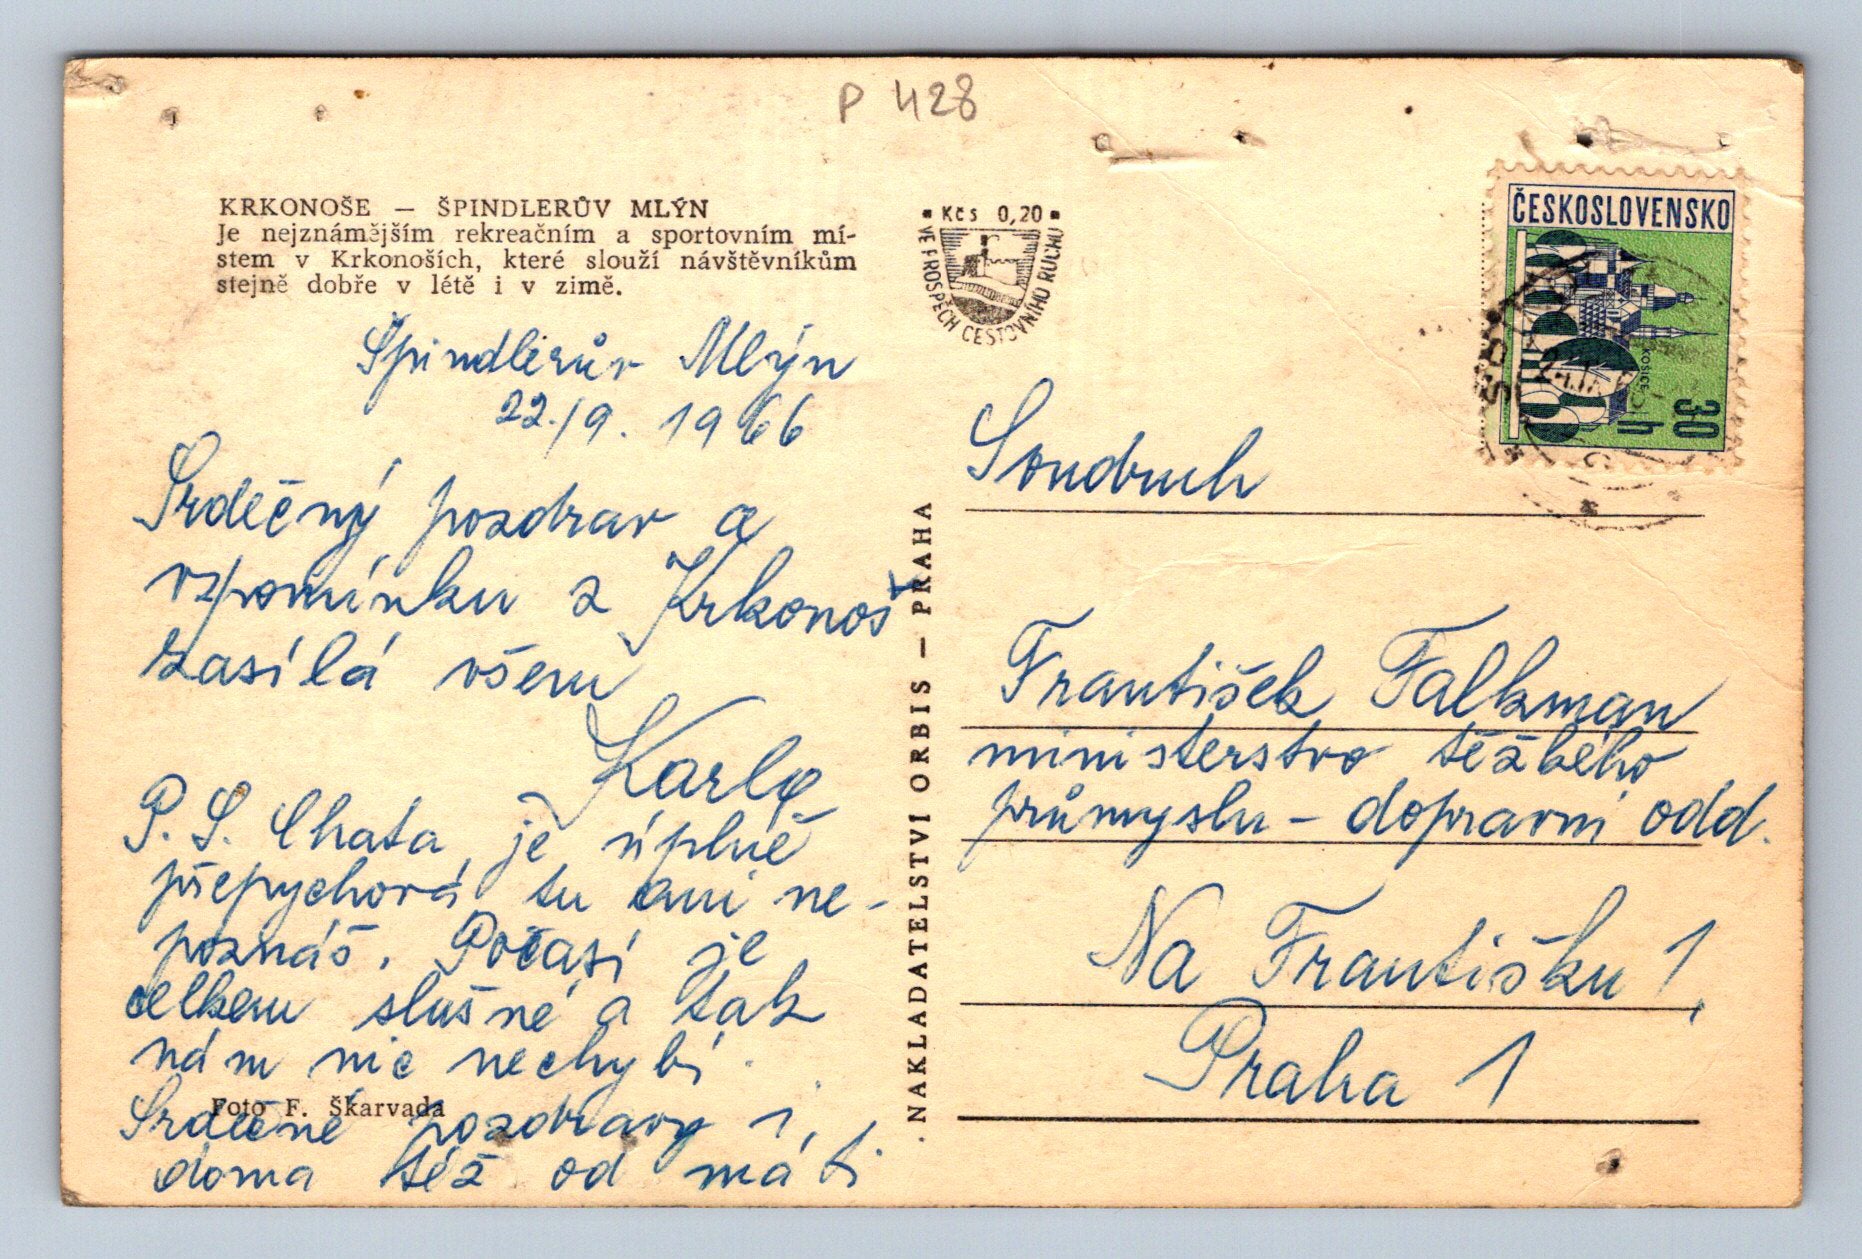 P 428
KRKONOŠE — ŠPINDLERŮV MLÝN
Je nejznámějším rekreačním a sportovním mí-
stem v Krkonoších, které slouží návštěvníkům
stejně dobře v létě i v zimě.
Kčs 0,20
VE PROSPĚCH CESTOVNÍHO RUCHU
ČESKOSLOVENSKO
KOŠICE
30 h
Špindlerův Mlýn
22./9. 1966
Srdečný pozdrav a
vzpomínku z Krkonoš
zasílá všem
Karla
P. S. Chata je úplně
přepychová, tu ani ne-
poznáš. Počasí je
celkem slušné a tak
nám nic nechybí.
Srdečné pozdravy i
doma též od máti
Foto F. Škarvada
NAKLADATELSTVÍ ORBIS — PRAHA
Soudruh
František Falkman
ministerstvo těžkého
průmyslu - dopravní odd.
Na Františku 1,
Praha 1